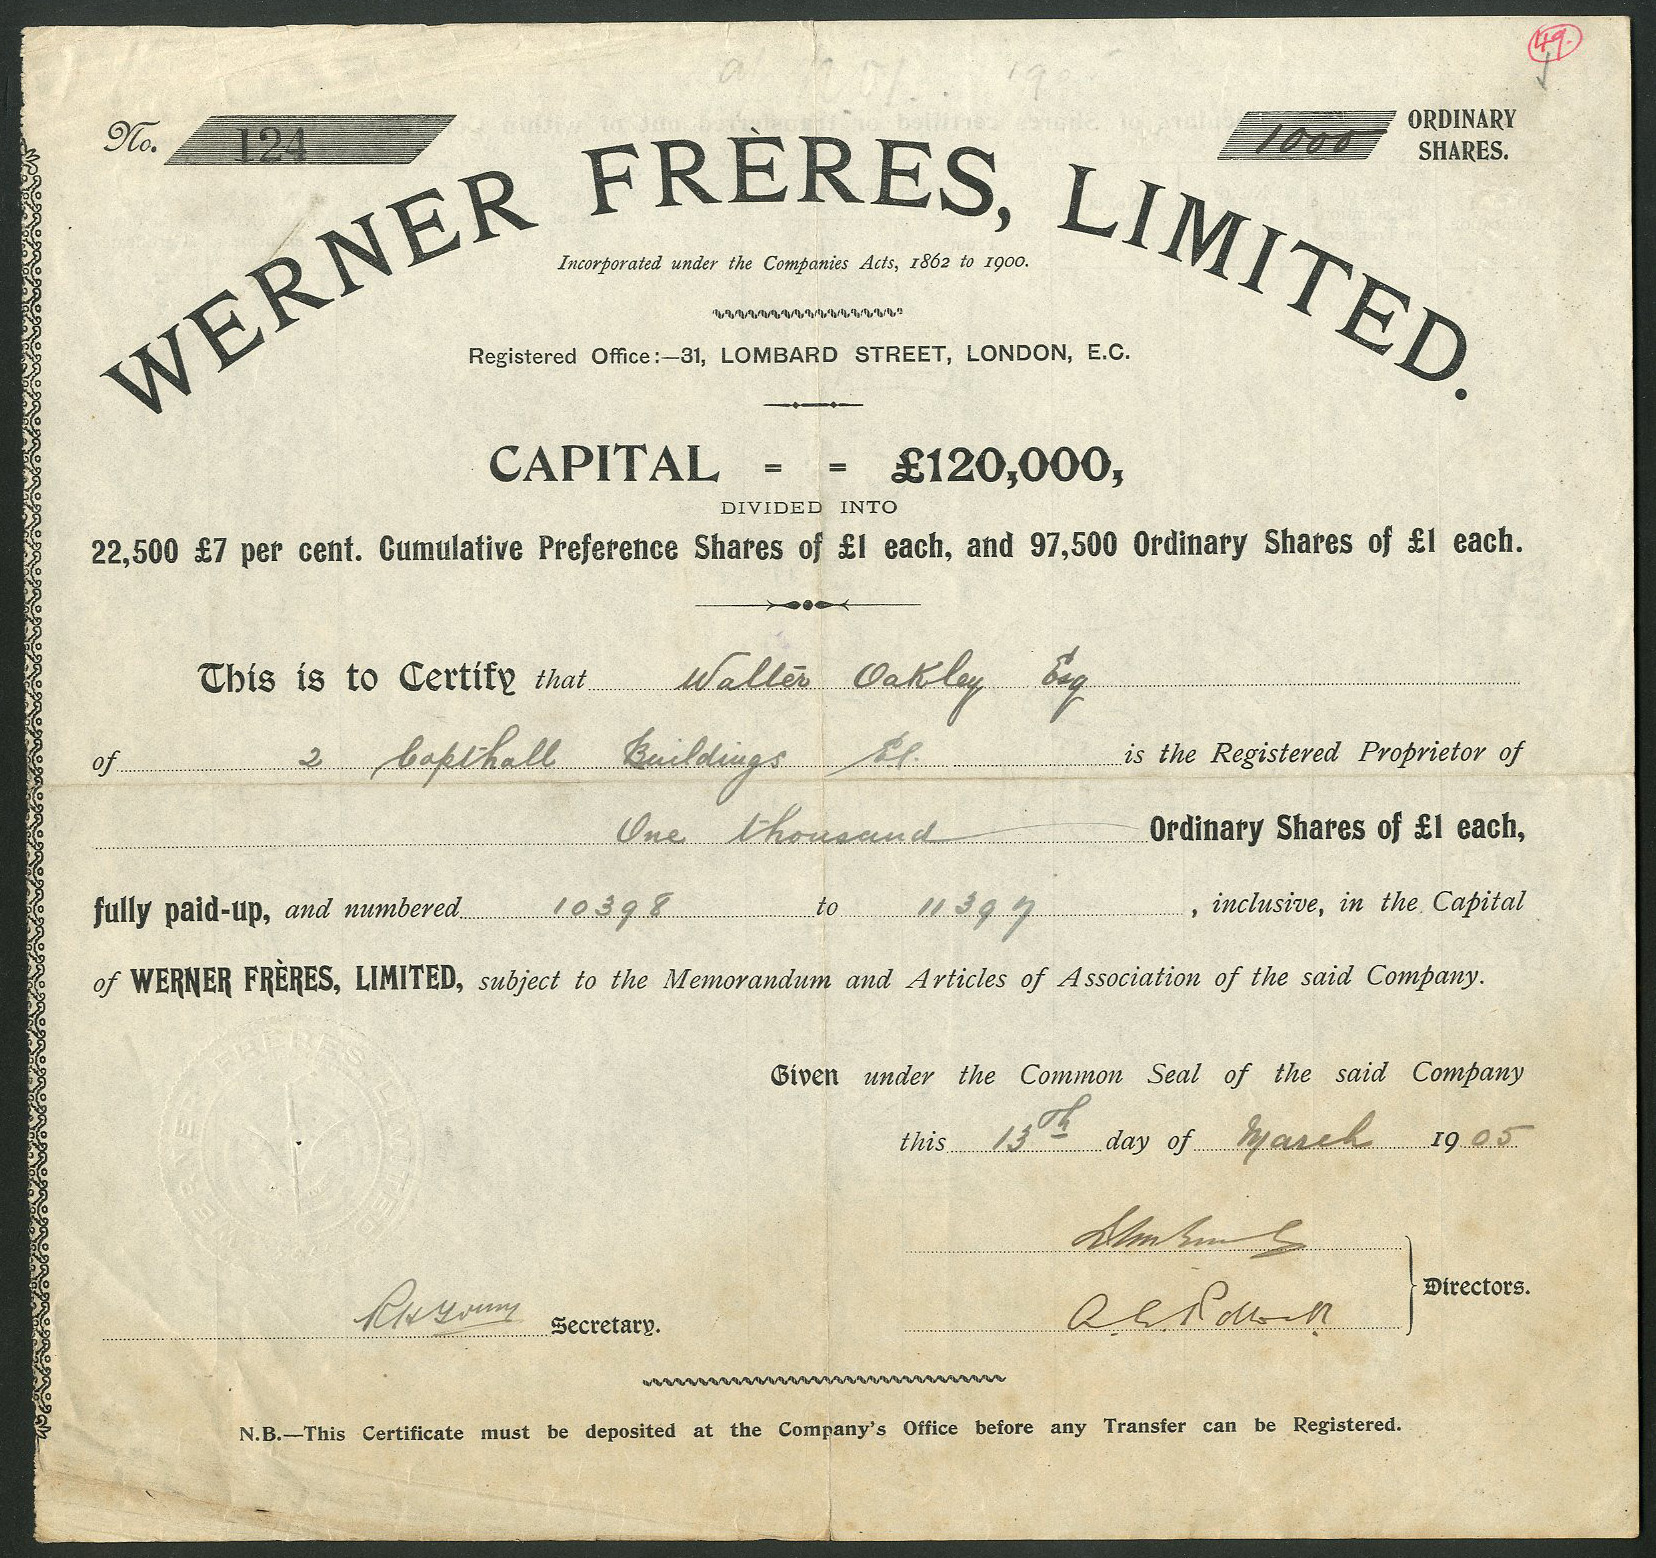 49.
No. 124
1000 ORDINARY SHARES.
WERNER FRÈRES, LIMITED.
Incorporated under the Companies Acts, 1862 to 1900.
Registered Office:—31, LOMBARD STREET, LONDON, E.C.
CAPITAL = = £120,000,
DIVIDED INTO
22,500 £7 per cent. Cumulative Preference Shares of £1 each, and 97,500 Ordinary Shares of £1 each.
This is to Certify that Walter Oakley Esq
of 2 Copthall Buildings E.C. is the Registered Proprietor of
One thousand Ordinary Shares of £1 each,
fully paid-up, and numbered 10398 to 11397, inclusive, in the Capital
of WERNER FRÈRES, LIMITED, subject to the Memorandum and Articles of Association of the said Company.
Given under the Common Seal of the said Company
this 13th day of March 1905
WERNER FRERES LIMITED
Directors.
R H Young Secretary.
N.B.—This Certificate must be deposited at the Company's Office before any Transfer can be Registered.